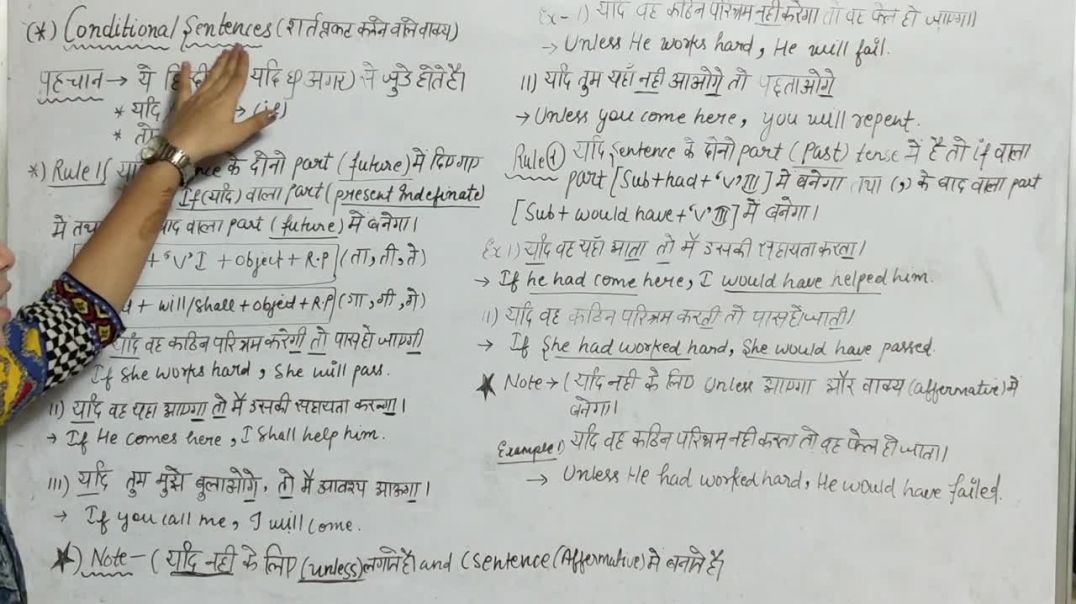 (*) Conditional Sentences (शर्त प्रकट करने वाले वाक्य)
पहचान → ये यदि अगर) से जुडे होते है।
* यदि → (if)
*
*) Rule 1f के दोनो part (future) में दिए गए
If (यदि) वाला part (present Indefinate)
मे वाला part (future) में बनेगा।
+ 'V' I + object + R.P] (ता, ती, ते)
+ will/shall + object + R.P] (गा, गी, गे)
यदि वह कठिन परिश्रम करेगी तो पास हो जाएगी
If She works hard, She will pass.
11) यदि वह यहा आएगा तो मै उसकी सहायता करूगा।
→ If He comes here, I Shall help him.
111) यदि तुम मुझे बुलाओगे, तो मै आवश्य आऊगा।
→ If you call me, I will come.
*) Note - (यदि नही के लिए (unless) लगाते है। and (Sentence (Affermative) मे बनाते है।
Ex-1) यदि वह कठिन परिश्रम नही करेगा तो वह फेल हो जाएगा।
→ Unless He works hard, He will fail.
11) यदि तुम यहाँ नही आओगे तो पछताओगे
→ Unless you come here, you will repent.
Rule यदि Sentence के दोनो part (Past) tense में है तो if वाला
part [Sub + had + 'V' III] में बनेगा तथा (,) के बाद वाला part
[Sub + would have + 'V' III] में बनेगा।
Ex 1) यदि वह यहाँ आता तो मै उसकी सहायता करता।
→ If he had come here, I would have helped him.
11) यदि वह कठिन परिश्रम करती तो पास हो जाती।
→ If She had worked hard, She would have passed.
★ Note → (यदि नही के लिए Unless आएगा और वाक्य (affermative) मे
बनेगा।
Example 1) यदि वह कठिन परिश्रम नही करता तो वह फेल हो जाता।
→ Unless He had worked hard, He would have failed.